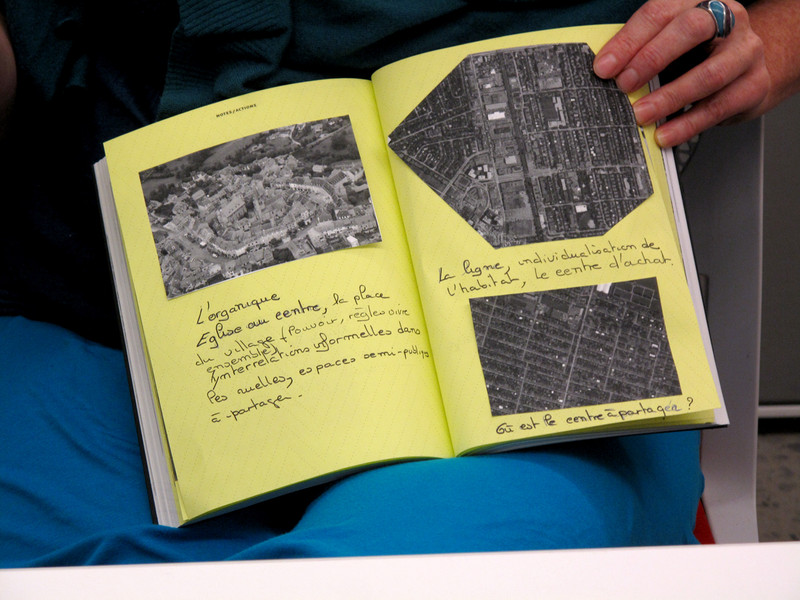 NOTES/ACTIONS
L'organique
Eglise au centre, la place
du village (Pouvoir, règles vivre
ensemble)
interrelations informelles dans
les ruelles, espaces semi-publics
à partager.
La ligne, individualisation de
l'habitat, le centre d'achat.
Où est le centre à partager ?